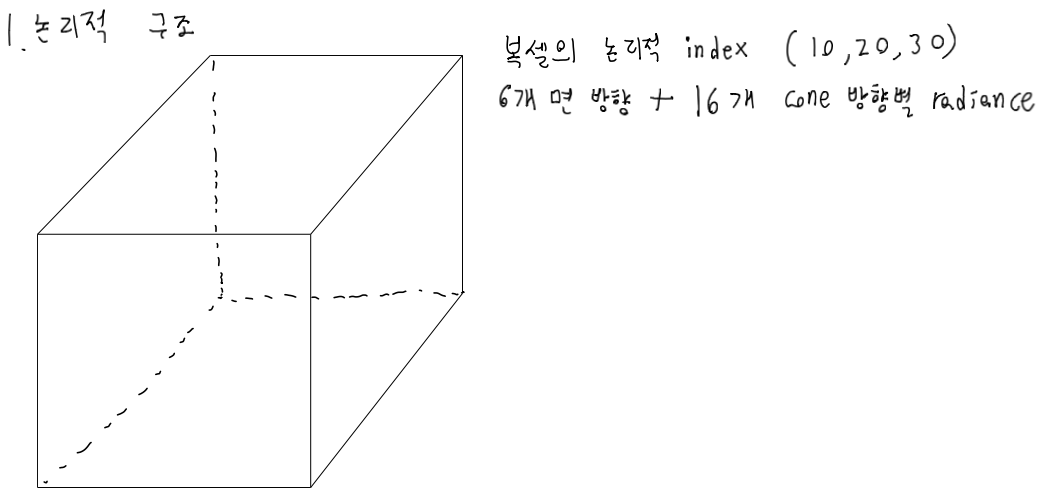 1. 논리적 구조
복셀의 논리적 index (10,20,30)
6개 면 방향 + 16개 cone 방향별 radiance